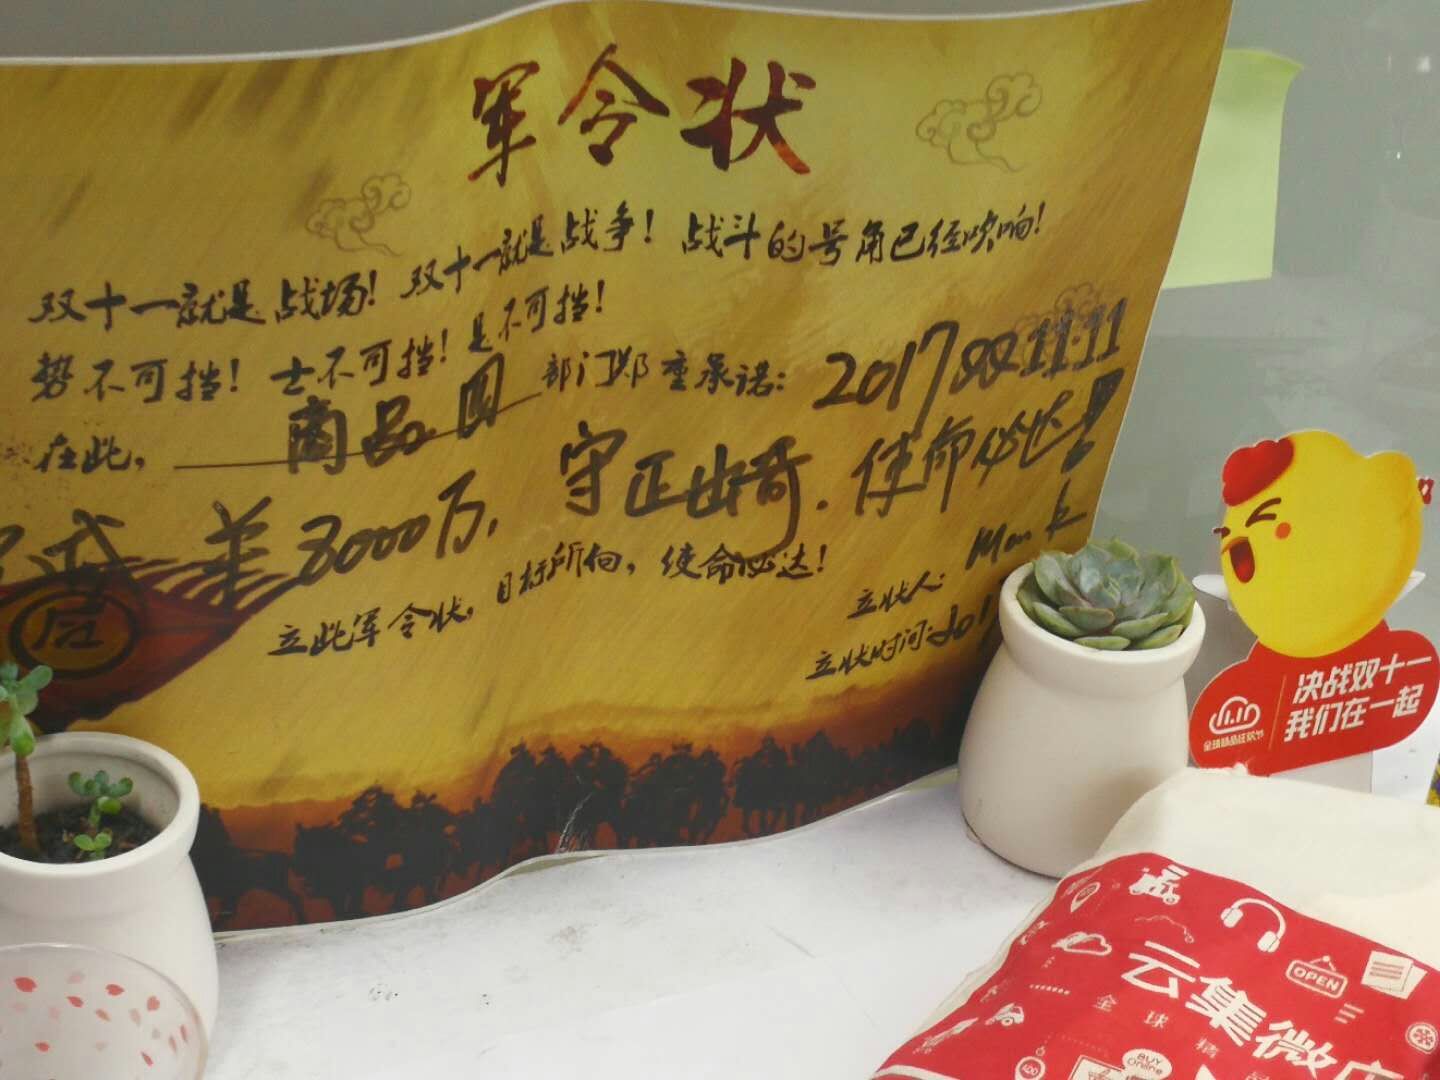 军令状
双十一就是战场！双十一就是战争！战斗的号角已经吹响！
势不可挡！士不可挡！是不可挡！
在此，商品 部门郑重承诺：2017双11.11
8000万，守正出奇．使命必达！
立此军令状，目标所向，使命必达！
立状人：Mark
立状时间：201
决战双十一
我们在一起
11.11
全球精品狂欢节
云集微店
全球精
OPEN
BUY
Online
ADD